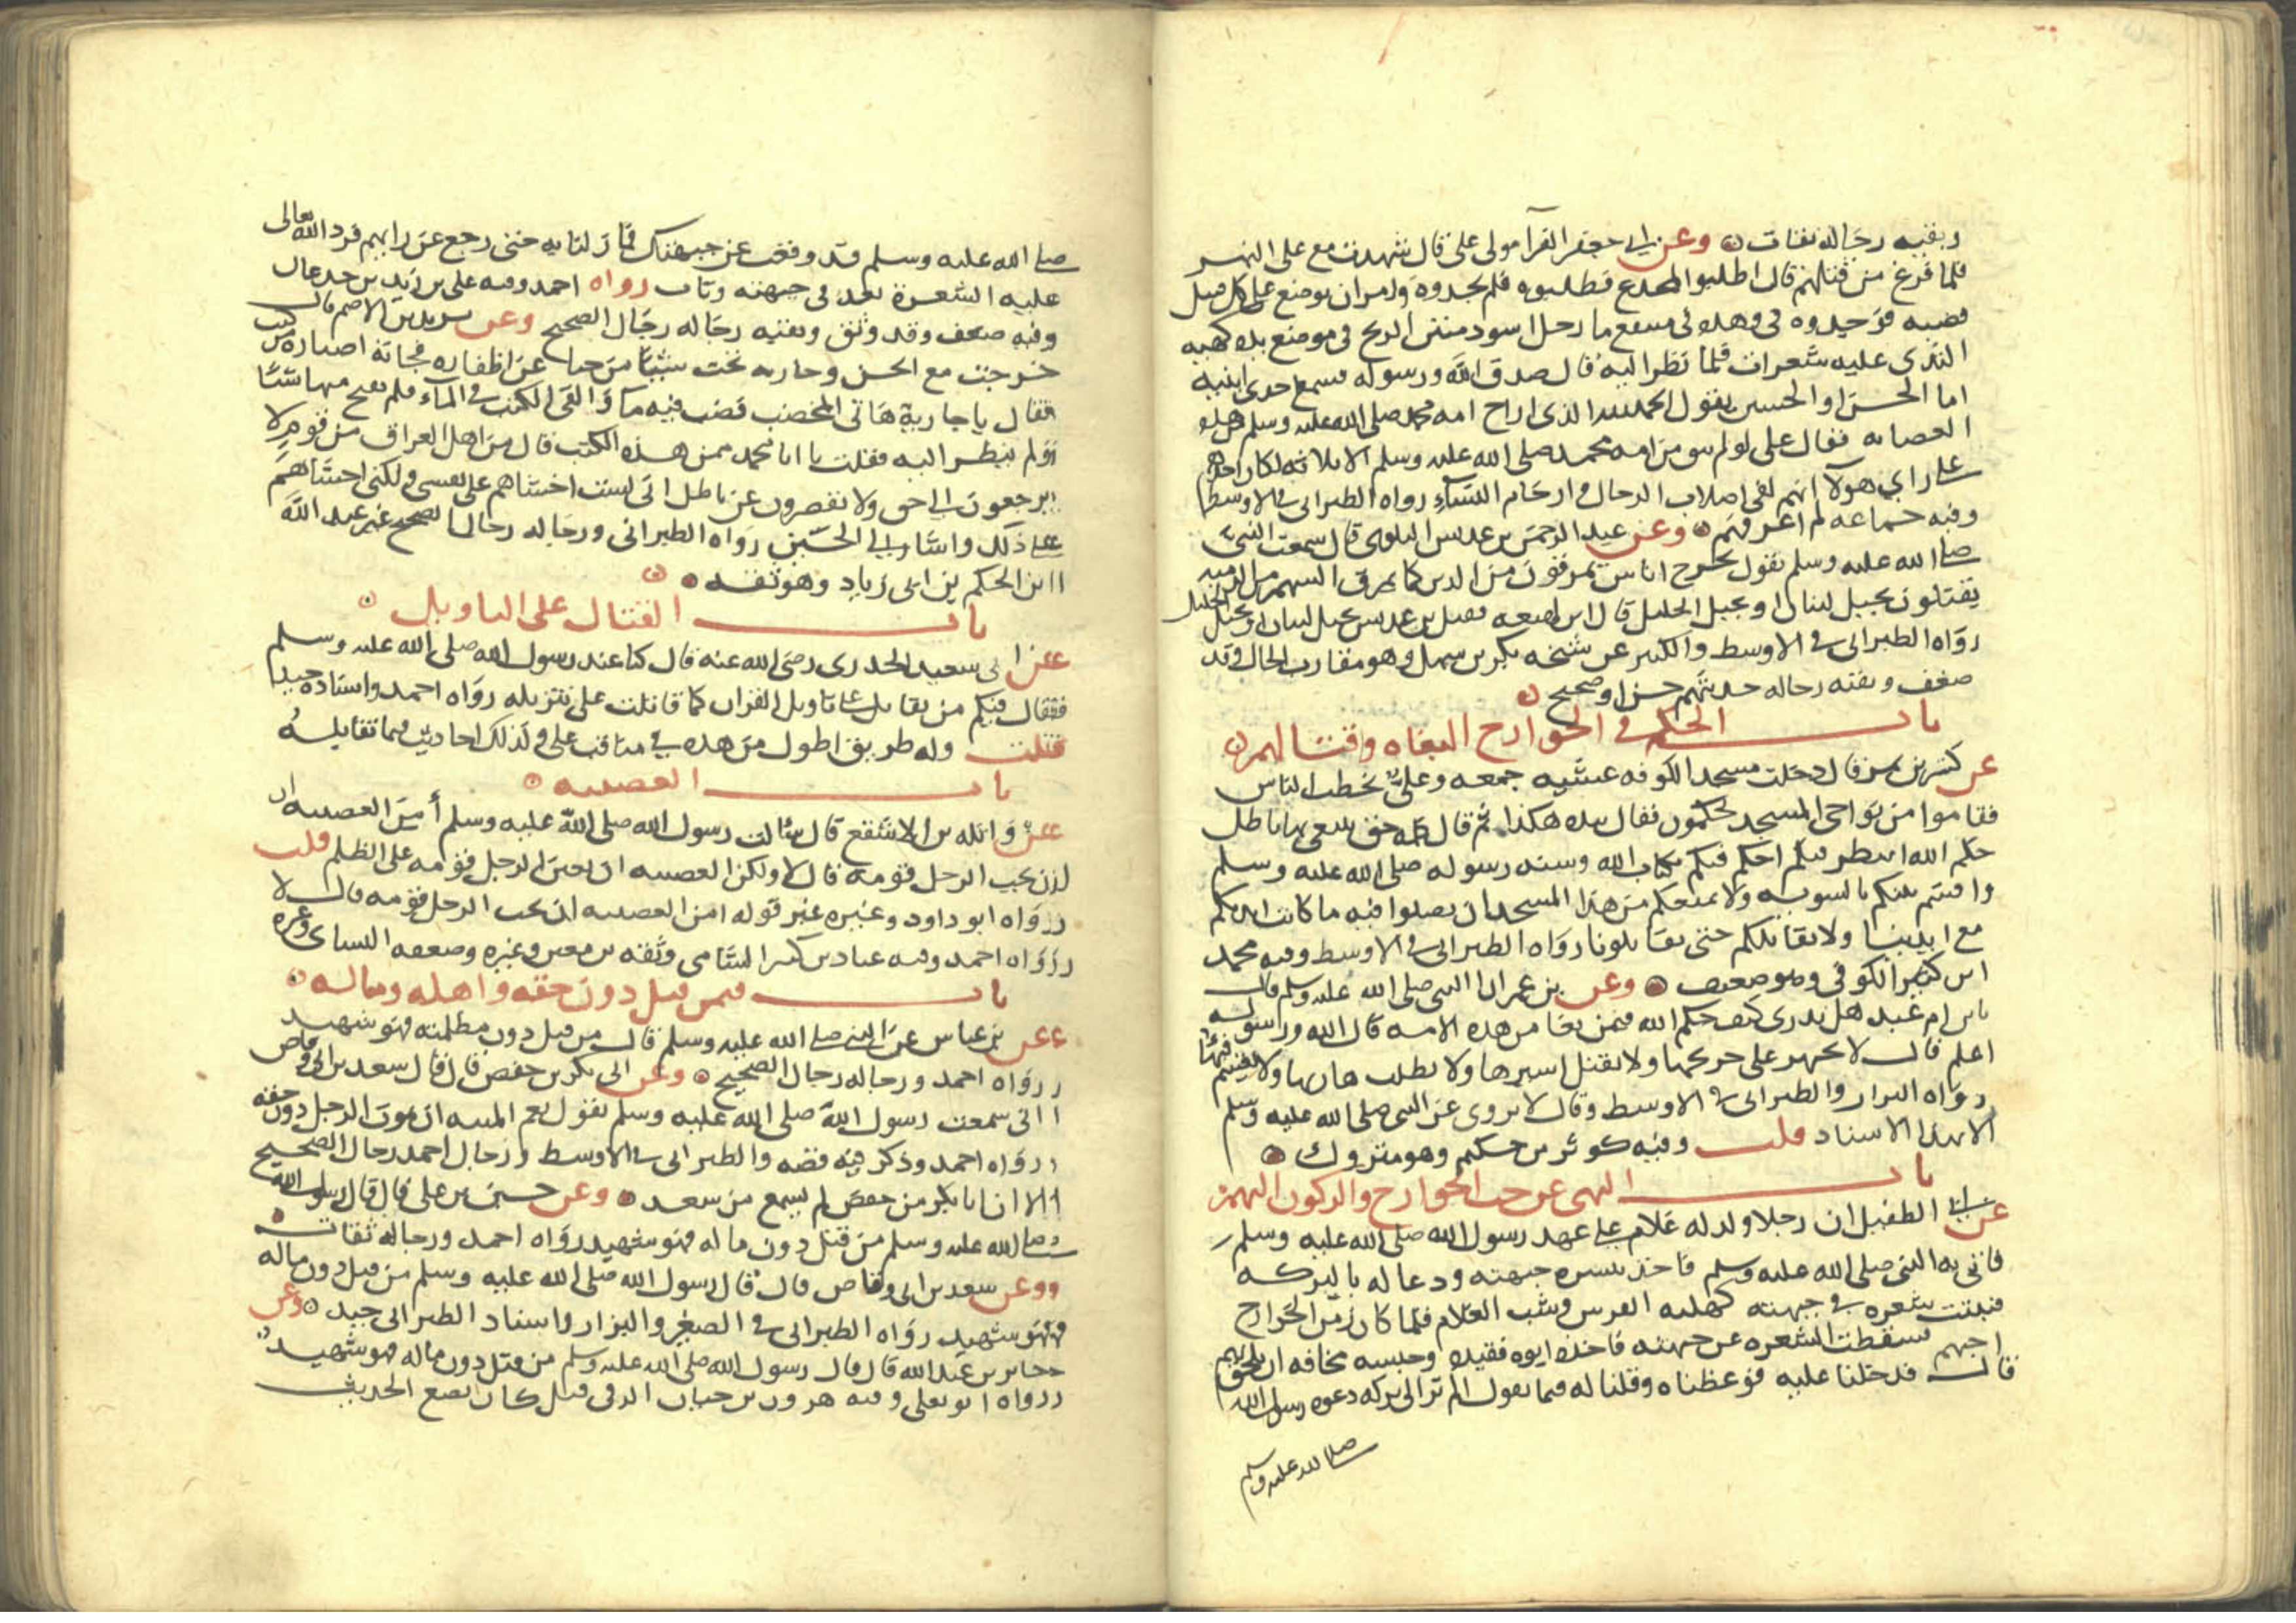 وبقيه رجاله ثقات وعن ابي جعفر الفرآ مولى على قال شهدت مع على النهر
فلما فرغ من قتلهم قال اطلبوا المخدع فطلبوه فلم يجدوه وامر ان يوضع على كل قتيل
قصبه فوجدوه في وهده في مستنقع ما رجل اسود منتن الريح في موضع يده كهيه
الثدى عليه شعرات فلما نظر اليه قال صدق الله ورسوله فسمع احدى ابنيه
اما الحسن او الحسين يقول الحمد لله الذى اراح امه محمد صلى الله عليه وسلم من هذه
العصابه فقال على لو لم يبق من امه محمد صلى الله عليه وسلم الا ثلاثه لكان احدهم
على راي هولآ انهم لفى اصلاب الرجال وارحام النسآء رواه الطبراني في الاوسط
وفيه جماعه لم اعرفهم وعن عبد الرحمن بن عديس البلوى قال سمعت النبي
صلى الله عليه وسلم يقول يخرج اناس يمرقون من الدين كما يمرق السهم من الرميه
يقتلون بجبل لبنان او بجبل الخليل قال ابن لهيعه فقتل بن عديس بجبل لبنان او بجبل الخليل
رواه الطبراني في الاوسط والكبير عن شيخه بكر بن سهل وهو مقارب الحال وقد
ضعف وبقيه رجاله حديثهم حسن او صحيح
باب الحكم في الخوارج البغاه وقتالهم
عن كثير بن نمر قال دخلت مسجد الكوفه عشيه جمعه وعلى يخطب الناس
فقاموا من نواحي المسجد يحكمون فقال بيده هكذا ثم قال كلمه حق يبتغى بها باطل
حكم الله انتظر فيكم احكم فيكم بكتاب الله وسنه رسوله صلى الله عليه وسلم
واقسم بينكم بالسويه ولا نمنعكم من هذا المسجد ان تصلوا فيه ما كانت ايديكم
مع ايدينا ولا نقاتلكم حتى تقاتلونا رواه الطبراني في الاوسط وفيه محمد
ابن كثير الكوفي وهو ضعيف وعن بن عمر ان النبي صلى الله عليه وسلم قال
يابن ام عبد هل تدرى كيف حكم الله فيمن بغا من هذه الامه قال الله ورسوله
اعلم قال لا يجهز على جريحها ولا يقتل اسيرها ولا يطلب هاربها ولا يقسم فيئها
رواه البزار والطبراني في الاوسط وقال لا يروى عن النبي صلى الله عليه وسلم
الا بهذا الاسناد قلت وفيه كوثر بن حكيم وهو متروك
باب النهى عن حب الخوارج والركون اليهم
عن ابي الطفيل ان رجلا ولد له غلام على عهد رسول الله صلى الله عليه وسلم
فاتى به النبي صلى الله عليه وسلم فاخذ ببشره جبهته ودعا له بالبركه
فنبتت شعره في جبهته كهلبه الفرس وشب الغلام فلما كان زمن الخوارج
احبهم فسقطت الشعره عن جبهته فاخذه ابوه فقيده وحبسه مخافه ان يلحق بهم
قال فدخلنا عليه فوعظناه وقلنا له فيما نقول الم تر الى بركه دعوه رسول الله
صلى الله عليه وسلم
صلى الله عليه وسلم قد وقعت عن جبهتك فما زلنا به حتى رجع عن رايهم فرد الله تعالى
عليه الشعرة بعد في جبهته وتاب رواه احمد وفيه على بن زيد بن جدعان
وفيه ضعف وقد وثق وبقيه رجاله رجال الصحيح وعن يزيد بن الاصم قال
خرجت مع الحسن وجاريه تحت شيئا من حنا عن اظفاره فجاته اضباره من كتب
فقال يا جارية هاتى المخضب فصب فيه ماً والقى الكتب في المآء فلم يفتح منها شيئا
ولم ينظر اليه فقلت يا ابا محمد ممن هذه الكتب قال من اهل العراق من قوم لا
يرجعون الى حق ولا يقصرون عن باطل انى لست اخشاهم على نفسى ولكنى اخشاهم
على ذلك واشار الى الحسين رواه الطبراني ورجاله رجال الصحيح غير عبد الله
ابن الحكم بن ابي زياد وهو ثقه
باب القتال على التاويل
عن ابي سعيد الخدرى رضى الله عنه قال كنا عند رسول الله صلى الله عليه وسلم
فقال فيكم من يقاتل على تاويل القران كما قاتلت على تنزيله رواه احمد واسناده جيد
قلت وله طريق اطول من هذه في مناقب على وكذلك احاديث فيما تقاتله
باب العصبيه
عن واثله بن الاسقع قال سالت رسول الله صلى الله عليه وسلم أمن العصبيه ان
يحب الرجل قومه قال لا ولكن العصبيه ان يعين الرجل قومه على الظلم قلت
رواه ابو داود وغيره غير قوله امن العصبيه ان يحب الرجل قومه قال لا
رواه احمد وفيه عباد بن كثير الشامى وثقه بن معين وغيره وضعفه النساى وغيره
باب فيمن قتل دون حقه واهله وماله
عن بن عباس عن النبي صلى الله عليه وسلم قال من قتل دون مظلمته فهو شهيد
رواه احمد ورجاله رجال الصحيح وعن ابي بكر بن حفص قال قال سعد بن ابي وقاص
انى سمعت رسول الله صلى الله عليه وسلم يقول نعم الميته ان يموت الرجل دون حقه
رواه احمد وذكر فيه قصه والطبراني في الاوسط ورجال احمد رجال الصحيح
الا ان ابا بكر من حفص لم يسمع من سعد وعن حسين بن على قال قال رسول الله
صلى الله عليه وسلم من قتل دون ماله فهو شهيد رواه احمد ورجاله ثقات
وعن سعد بن ابي وقاص قال قال رسول الله صلى الله عليه وسلم من قتل دون ماله
فهو شهيد رواه الطبراني في الصغير والبزار واسناد الطبراني جيد وعن
جابر بن عبد الله قال قال رسول الله صلى الله عليه وسلم من قتل دون ماله فهو شهيد
رواه ابو يعلى وفيه هرون بن حيان الرقى قيل كان يضع الحديث